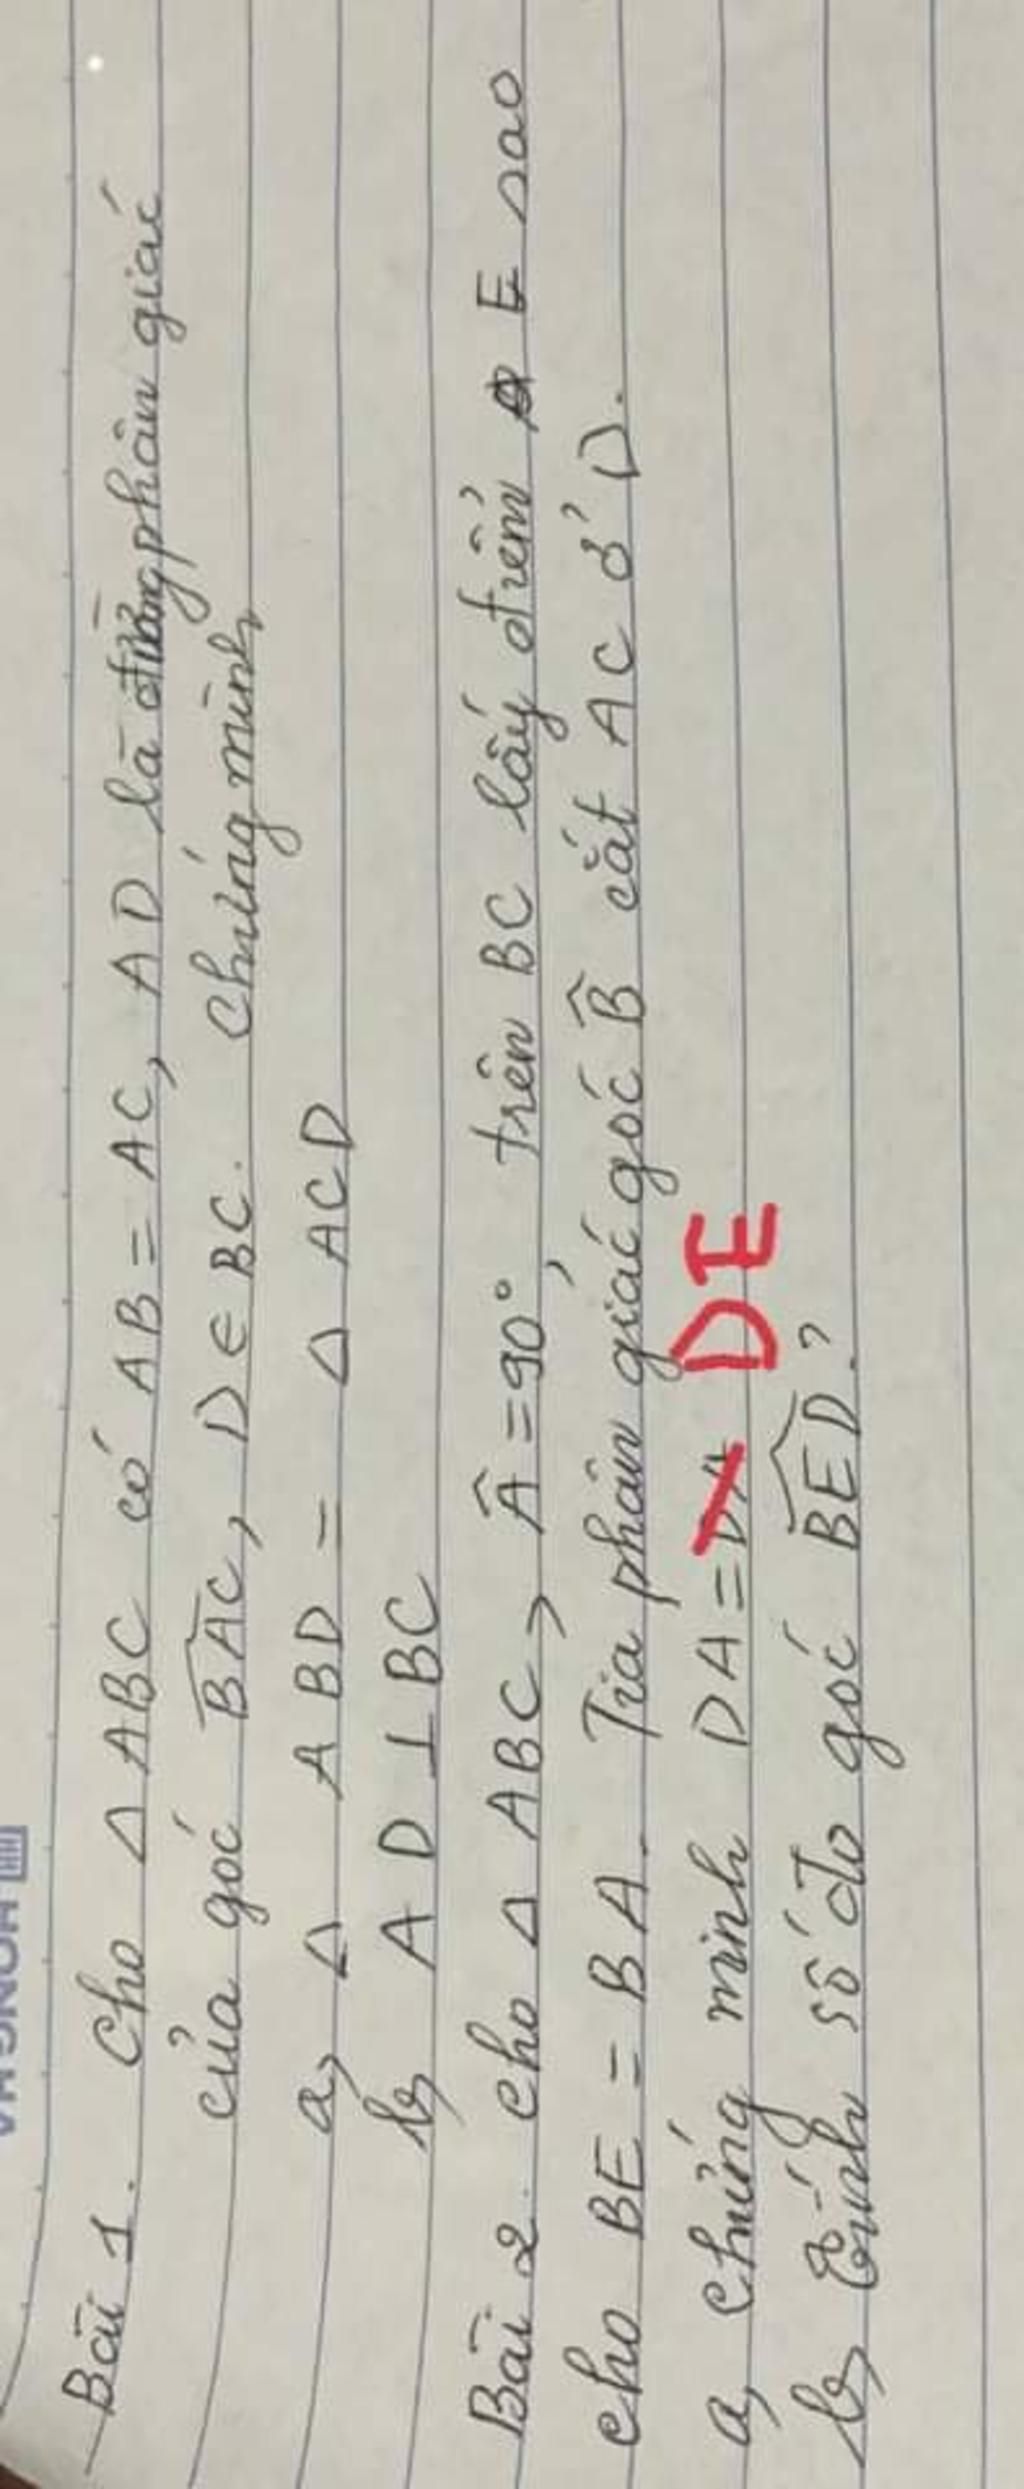 Bài 1. Cho Δ ABC có AB = AC, AD là đường phân giác
của góc BAC, D ∈ BC. Chứng minh
a, Δ ABD = Δ ACD
b, AD ⊥ BC
Bài 2. Cho Δ ABC, Â = 90°, trên BC lấy điểm E sao
cho BE = BA. Tia phân giác góc B̂ cắt AC ở D.
a, Chứng minh DA = DA DE
b, Tính số đo góc BED?